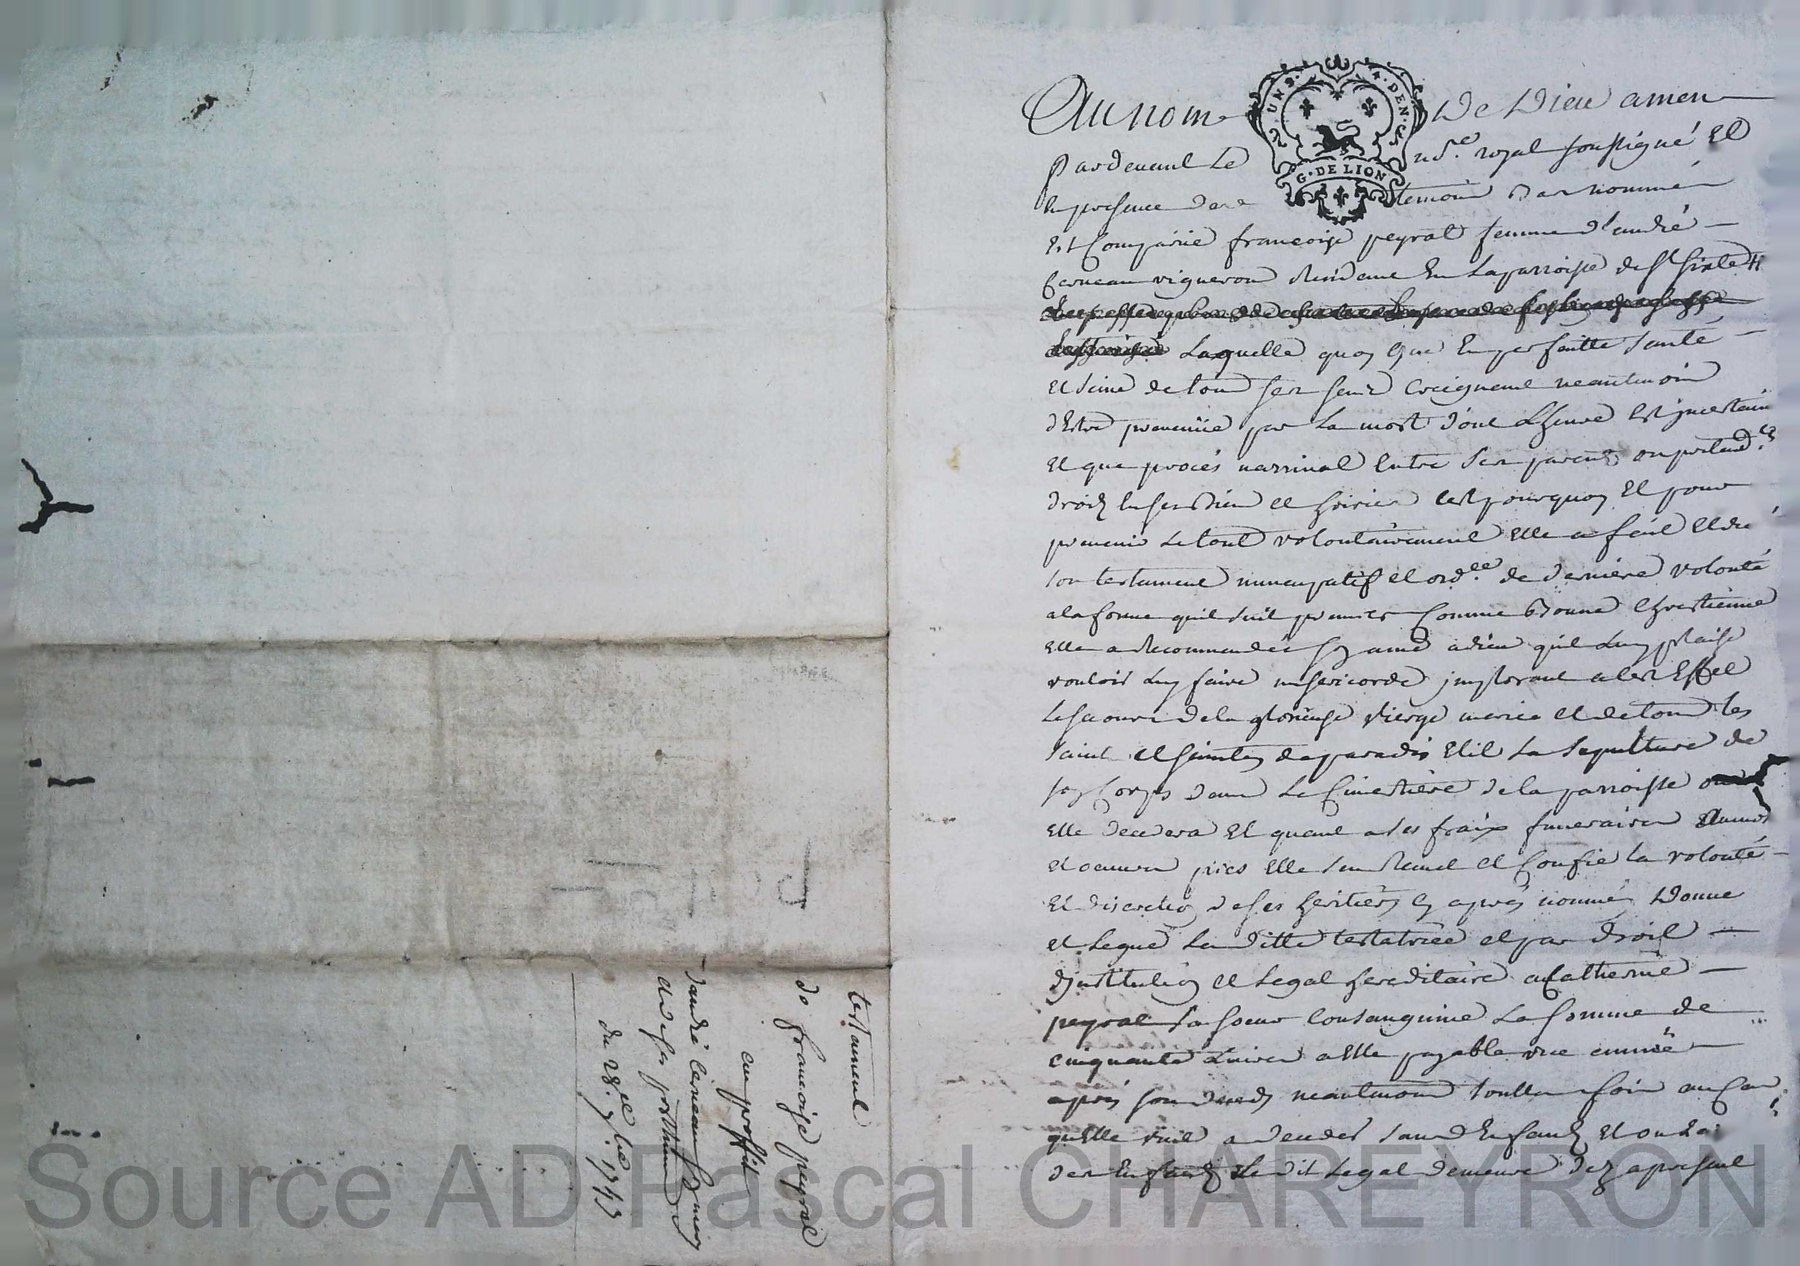 testament
de francoise peyral
au proffit
d'andré Cerneau son mary
et de ses posthumes
du 28e 7bre 1743
UN S. 4. DEN.
G. DE LION
Au nom De Dieu amen
Pardevant Le nore royal soussigné Et
En presence des temoins bas nommés
Est Comparüe françoise peyral femme d'andré
Cerneau vigneron Residant En La parroisse de St
Laquelle quoy que En parfaitte santé
Et saine de tous ses sens Craignant neantmoins
d'Estre prevenüe par La mort dont L'heure Est jncertaine
Et que procés n'arrivat Entre ses parents ou pretendts
droits En ses biens et hoiries C'est pourquoy Et pour
prevenir Le tout volontairement Elle a fait Et dit
son testament nuncupatif et ordce de derniere volonté
a la forme quil suit premier Comme Bonne Chrestienne
Elle a Recommandée son ame a dieu quil Luy plaise
vouloir Luy faire misericorde jmplorant a cest Effet
Le secours de la glorieuse Vierge marie et de tous les
saints et saintes de paradis Elit La sepulture de
son Corps dans Le Cimetiére de la parroisse ou
Elle decedera Et quant a ses fraix funeraires aumones
et oeuvres pies Elle s'en Remet et Confie la volonté
Et discretion de ses heritiers cy aprés nommés Donne
et Legue La ditte testatrice et par droit
d'jnstitution et Legat hereditaire a Catherine
peyral sa soeur Consanguine La somme de
cinquante Livres a Elle payable une année
aprés son decés neantmoins touttes fois au Cas
qu'Elle vint a deceder sans Enfants Et ou
des Enfants Le dit Legat demeure dez apresent
Source AD Pascal CHAREYRON